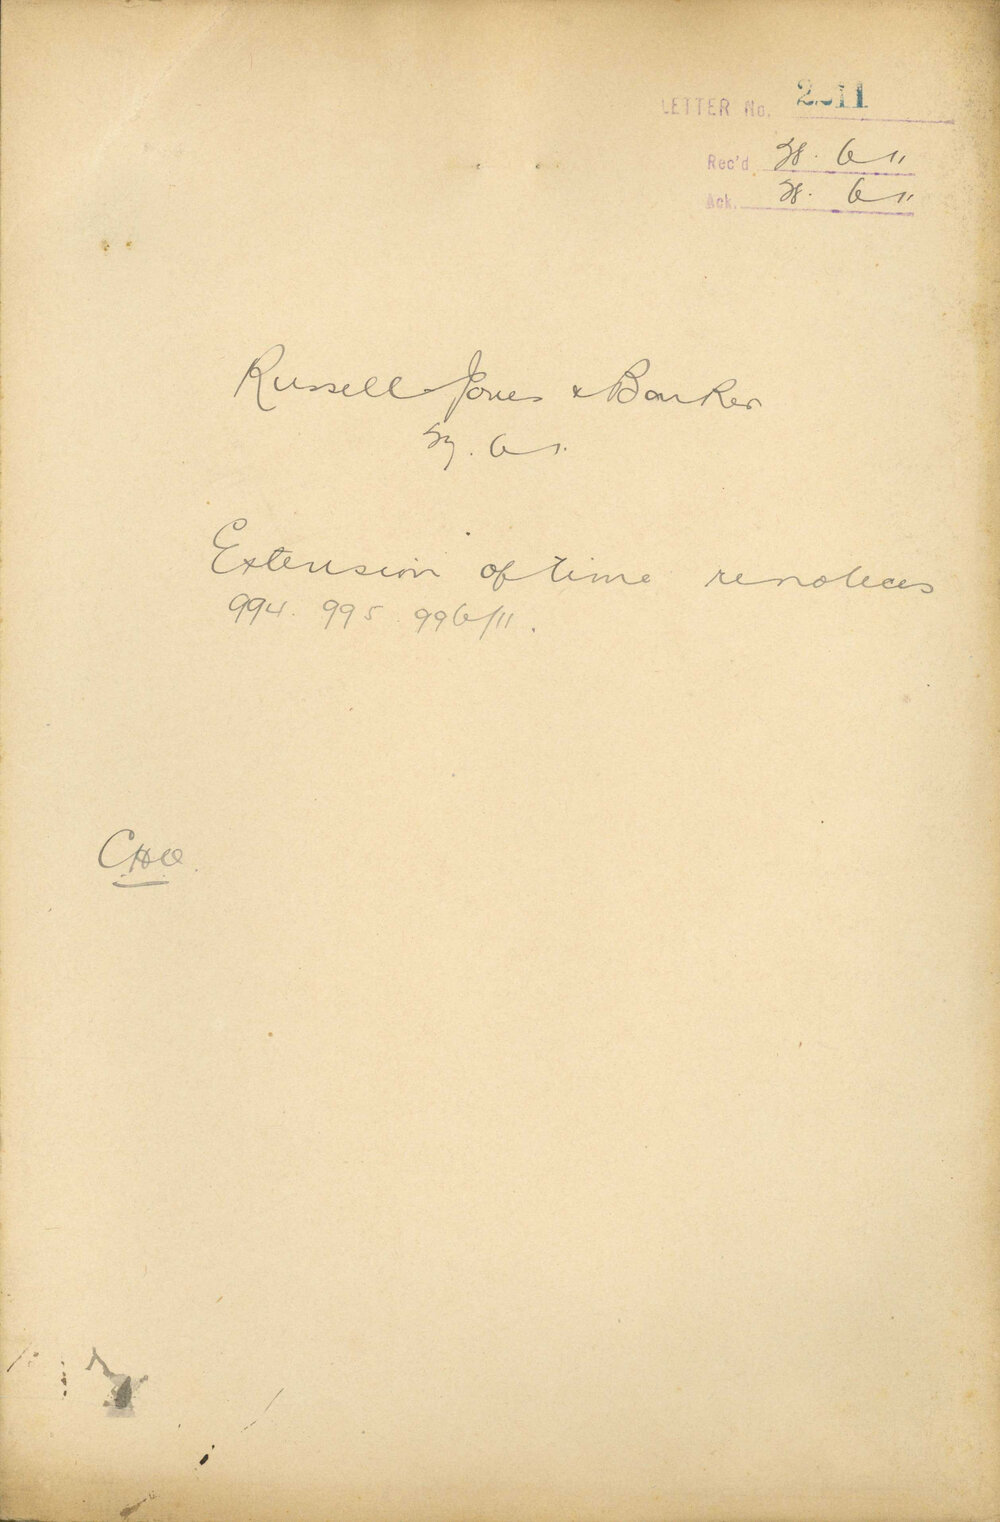 LETTER No. 2 11
Rec'd 28. 6 11
Ack. 28. 6 11
Russell Jones & Barker
27. 6 11.
Extension of time re notices
994. 995. 996/11.
CHO